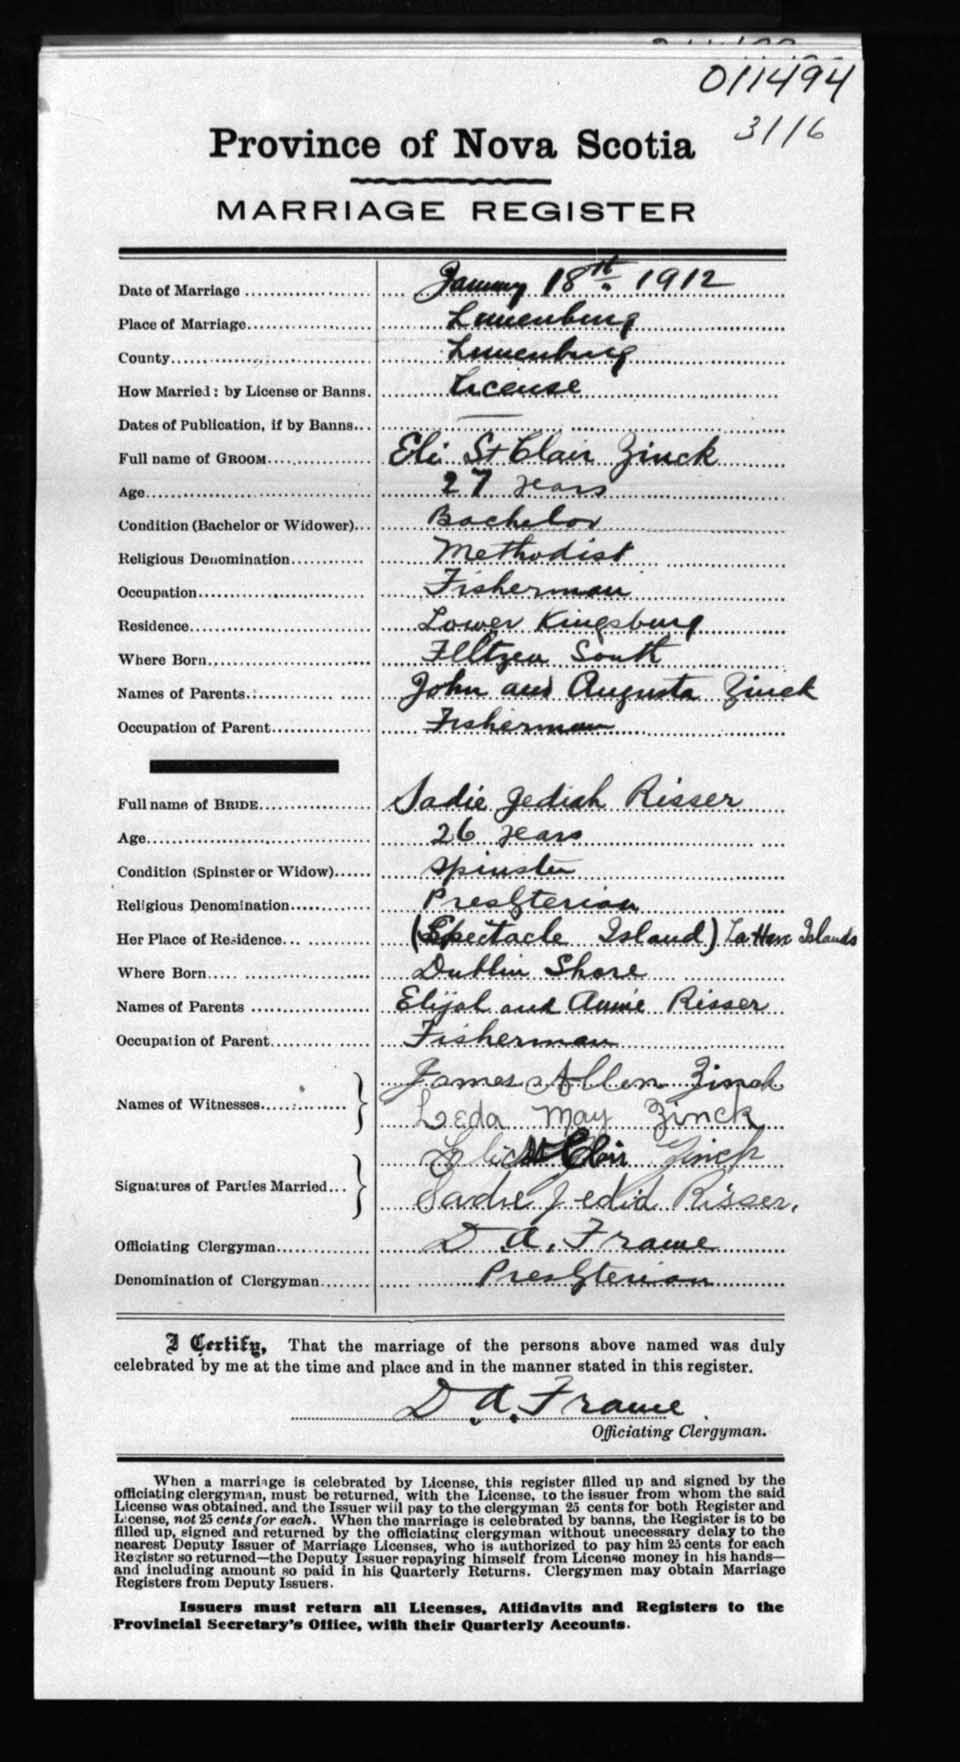 011494
3116
Province of Nova Scotia
MARRIAGE REGISTER
Date of Marriage January 18th 1912
Place of Marriage Lunenburg
County Lunenburg
How Married: by License or Banns. License
Dates of Publication, if by Banns —
Full name of GROOM Eli St Clair Zinck
Age 27 years
Condition (Bachelor or Widower) Bachelor
Religious Denomination Methodist
Occupation Fisherman
Residence Lower Kingsburg
Where Born Feltzen South
Names of Parents John and Augusta Zinck
Occupation of Parent Fisherman
Full name of BRIDE Sadie Jediah Risser
Age 26 years
Condition (Spinster or Widow) Spinster
Religious Denomination Presbyterian
Her Place of Residence (Spectacle Island) LaHave Islands
Where Born Dublin Shore
Names of Parents Elijah and Annie Risser
Occupation of Parent Fisherman
Names of Witnesses James Allen Zinck
Leda May Zinck
Signatures of Parties Married Eli St Clair Zinck
Sadie Jedid Risser.
Officiating Clergyman D. A. Frame
Denomination of Clergyman Presbyterian
I Certify, That the marriage of the persons above named was duly
celebrated by me at the time and place and in the manner stated in this register.
D. A. Frame
Officiating Clergyman.
When a marriage is celebrated by License, this register filled up and signed by the
officiating clergyman, must be returned, with the License, to the issuer from whom the said
License was obtained, and the Issuer will pay to the clergyman 25 cents for both Register and
License, not 25 cents for each. When the marriage is celebrated by banns, the Register is to be
filled up, signed and returned by the officiating clergyman without unnecessary delay to the
nearest Deputy Issuer of Marriage Licenses, who is authorized to pay him 25 cents for each
Register so returned—the Deputy Issuer repaying himself from License money in his hands—
and including amount so paid in his Quarterly Returns. Clergymen may obtain Marriage
Registers from Deputy Issuers.
Issuers must return all Licenses, Affidavits and Registers to the
Provincial Secretary's Office, with their Quarterly Accounts.